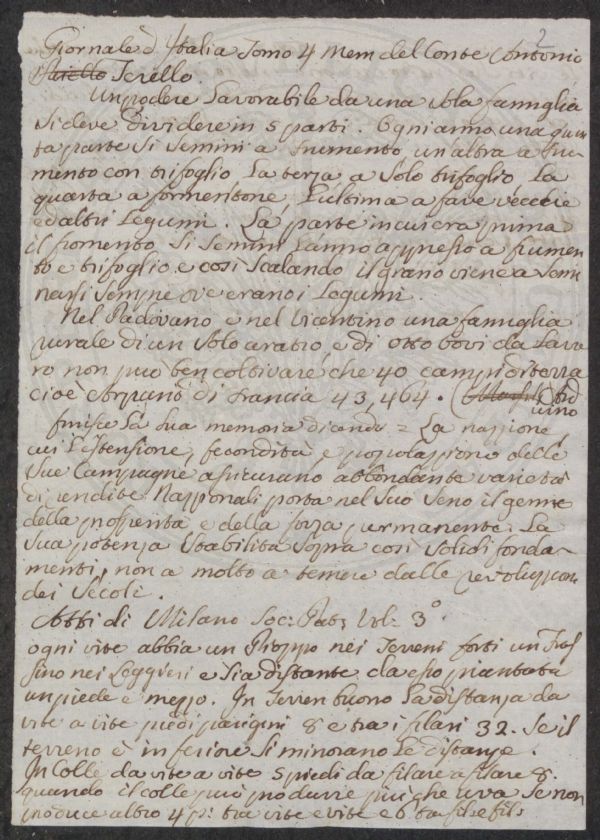 2
Giornale d'Italia Tomo 4 Mem del Conte Antonio
Torello
Un podere lavorabile da una sola famiglia
si deve dividere in 5 parti. Ogni anno una quin
ta parte si semini a frumento, un'altra a fru
mento con trifoglio, la terza a solo trifoglio, la
quarta a formentone, l'ultima a fave vecchie
ed altri legumi. La parte in cui era prima
il fromento si semini l'anno appresso a frumen
to e trifoglio e così scalando il grano viene a semi
narsi sempre ove erano i legumi.
Nel Padovano e nel Vicentino una famiglia
rurale di un solo aratro e di otto bovi da lavo
ro non può ben coltivare, che 40 campi di terra
cioè di Francia 43,464.
finisce la sua memoria dicendo = La nazzione,
cui l'estensione, fecondità e popolazzione delle
sue campagne assicurano abbondante varietà
di rendite nazzionali porta nel suo seno il germe
della prosperità e della forza permanente. La
sua potenza stabilita sopra così solidi fonda-
menti, non a molto a temere dalle rivoluzzioni
dei secoli.
Atti di Milano Soc: Pat: Vol: 3°
ogni vite abbia un Pioppo nei terreni forti un fras
sino nei leggieri e sia distante da esso piantata
un piede e mezzo. In terren buono la distanza da
vite a vite piedi parigini 8 e tra i filari 32. Se il
terreno è inferiore si minorano le distanze.
In colle da vite a vite 5 piedi da filare a filare 8.
quando il colle può produrre più che uva se non
produce altro 4 p: tra vite e vite e 6 tra fil e fil: